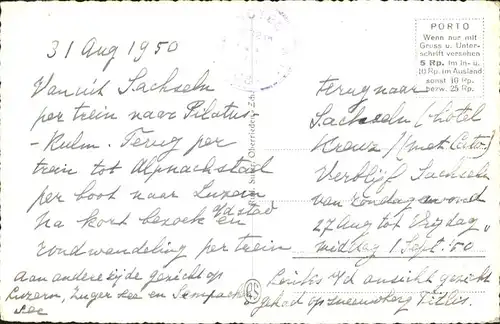 31 Aug 1950
Vanuit Sachseln
per trein naar Pilatus
-Kulm. Terug per
trein tot Alpnachstad
per boot naar Luzern
Na kort bezoek en
v/d stad
rondwandeling per trein
Aan andere zijde gezicht op
Luzern, Zuger see en Sempach
see
PORTO
Wenn nur mit
Gruss u. Unter-
schrift versehen
5 Rp. im In- u.
10 Rp. im Ausland
sonst 10 Rp.
bezw. 25 Rp.
terug naar
Sachseln (hotel
Kreuz) (met Cato)
Verblijf Sachseln
van Zondagavond
27 Aug tot Vrijdag
middag 1 Sept. 50
Links v/d ansicht gezicht
gehad op sneeuwberg Titlis.